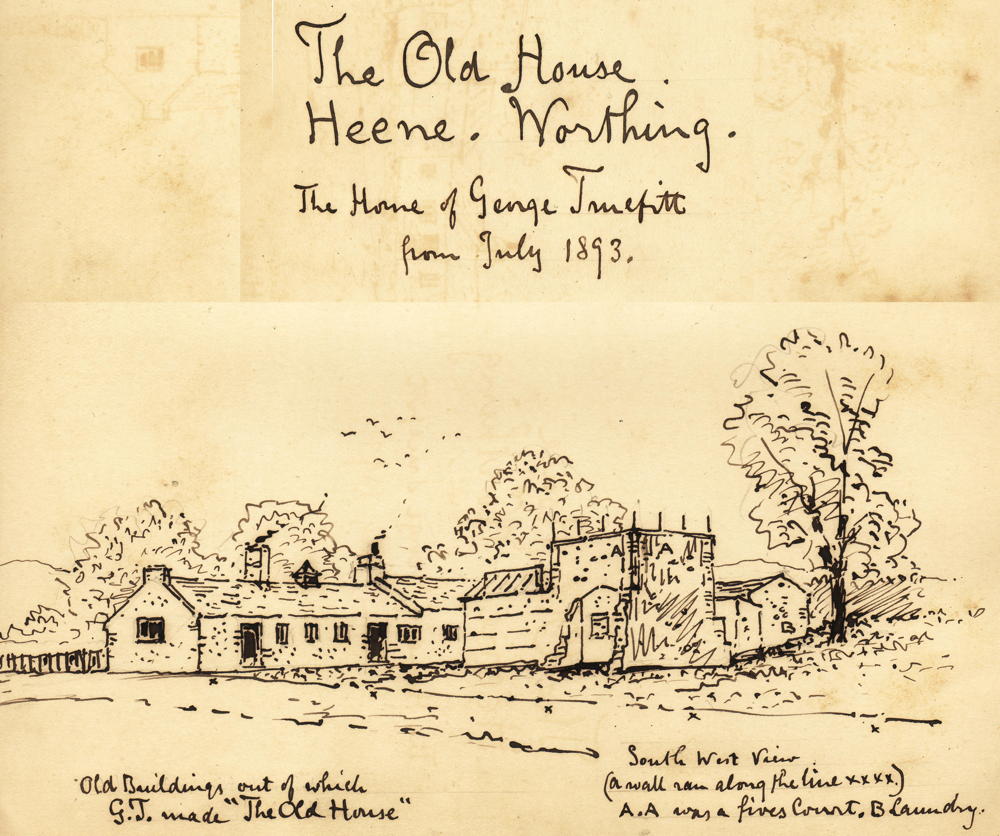 The Old House.
Heene. Worthing.
The Home of George Truefitt
from July 1893.
A A
B
Old Buildings out of which
G.T. made "The Old House"
South West View
(a wall ran along the line xxxx.)
A.A was a fives Court. B Laundry.